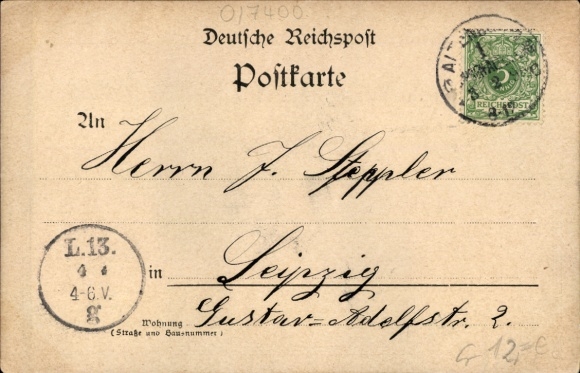 0/7400
Deutsche Reichspost
Postkarte
REICHSPOST
An
Herrn J. Steppler
L.13.
4 4
4-6.V.
g
in Leipzig
Wohnung Gustav=Adolfstr. 2.
(Straße und Hausnummer)
12,=